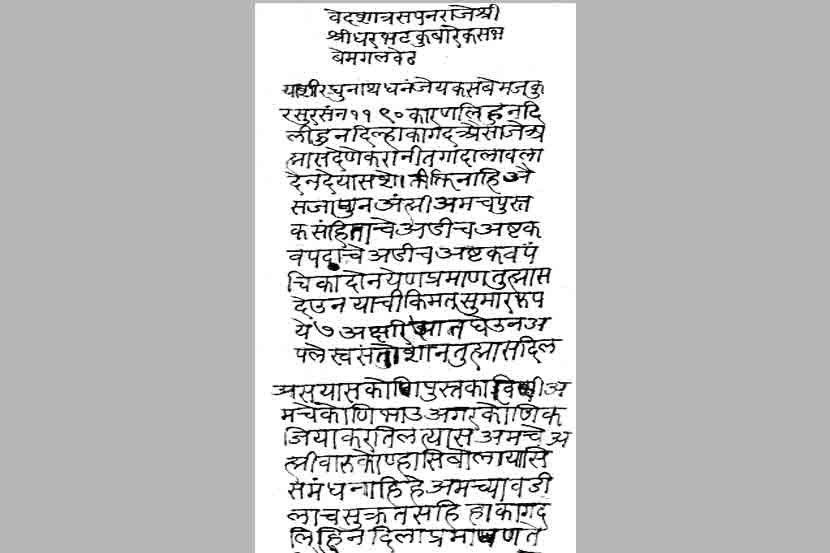 वेदशात्रसपनराजेश्री
श्रीधरभटकुबारेकसब
बेमगलवेढ
याशीरघुनाथधनंजेयकसबेमजकु
रसुरसंन११९०कारणलिहुनदि
लीहुनदिल्हाकागेदऐसाजेअ
ह्मासदेणेकरानीतगांदालावला
देनदेयासशेक्तीनाहिअै
सजाणुनअंह्मीअमचपुस्त
कसंहिताचेअडीचअष्टक
वपदाचेअडीचअष्टकवपं
चिकादोनयेणप्रमाणतुह्मास
देउनयाचीकिमतसुमाररूप
ये७अक्षरिसातघेउनअ
पलेस्वसंतोशानतुह्मासदिल
असयासकोणिपुस्तकाविशीअ
मचेकोणिभाउअगरकोणिक
जियाकरतिलत्यासअमचेअ
ह्मीवारुकोण्हासिबोलायासि
समंधनाहिहेअमच्यावडी
लाचसुक्रतसहिहाकागद
लिहिनदिलाप्रमाणते